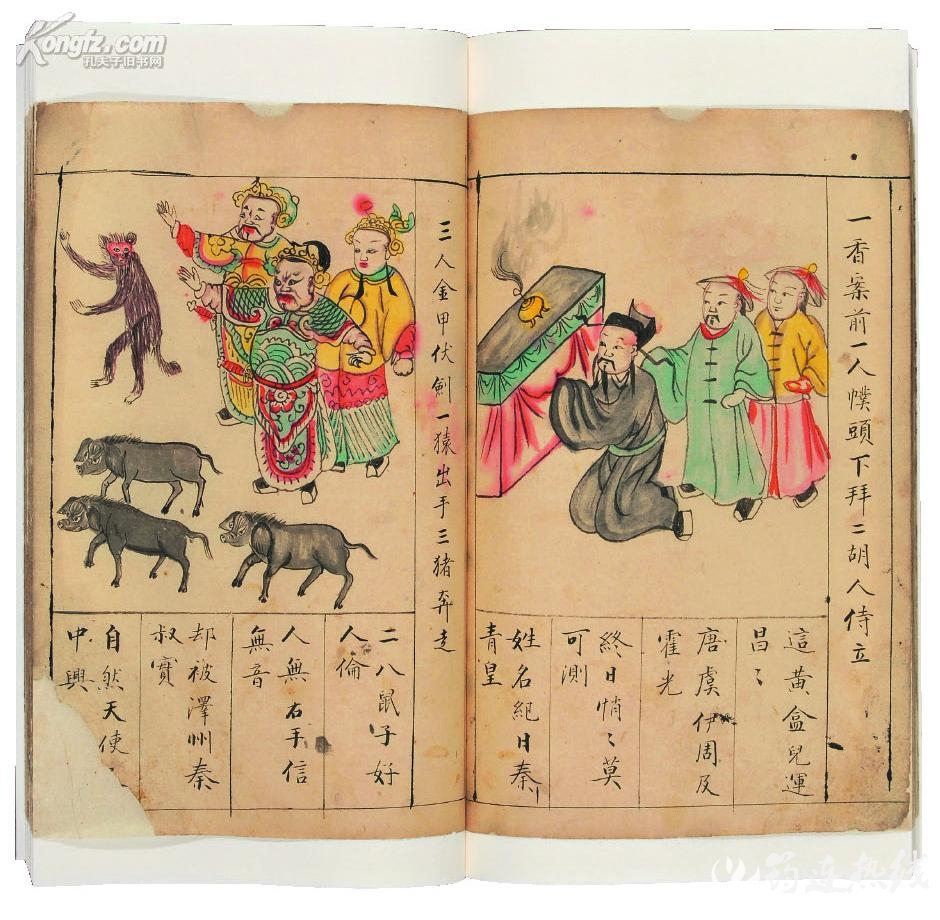 Kongfz.com
孔夫子旧书网
一香案前一人幞頭下拜二胡人侍立
這黄盒兒運
昌〻
唐虞伊周及
霍光
終日悄〻莫
可測
姓名紀日秦
青皇
三人金甲伏劍一猿出手三猪奔走
二八鼠子好
人倫
人無右手信
無音
却被澤州秦
叔寳
自然天使
中興
筠连热线